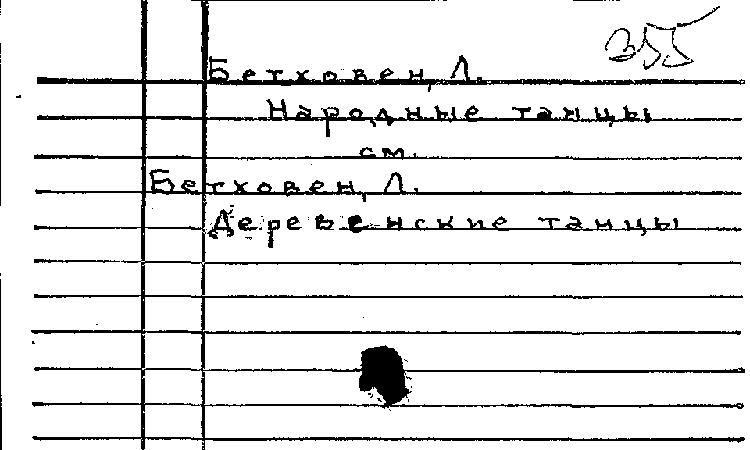 355
Бетховен, Л.
Народные танцы
см.
Бетховен, Л.
Деревенские танцы